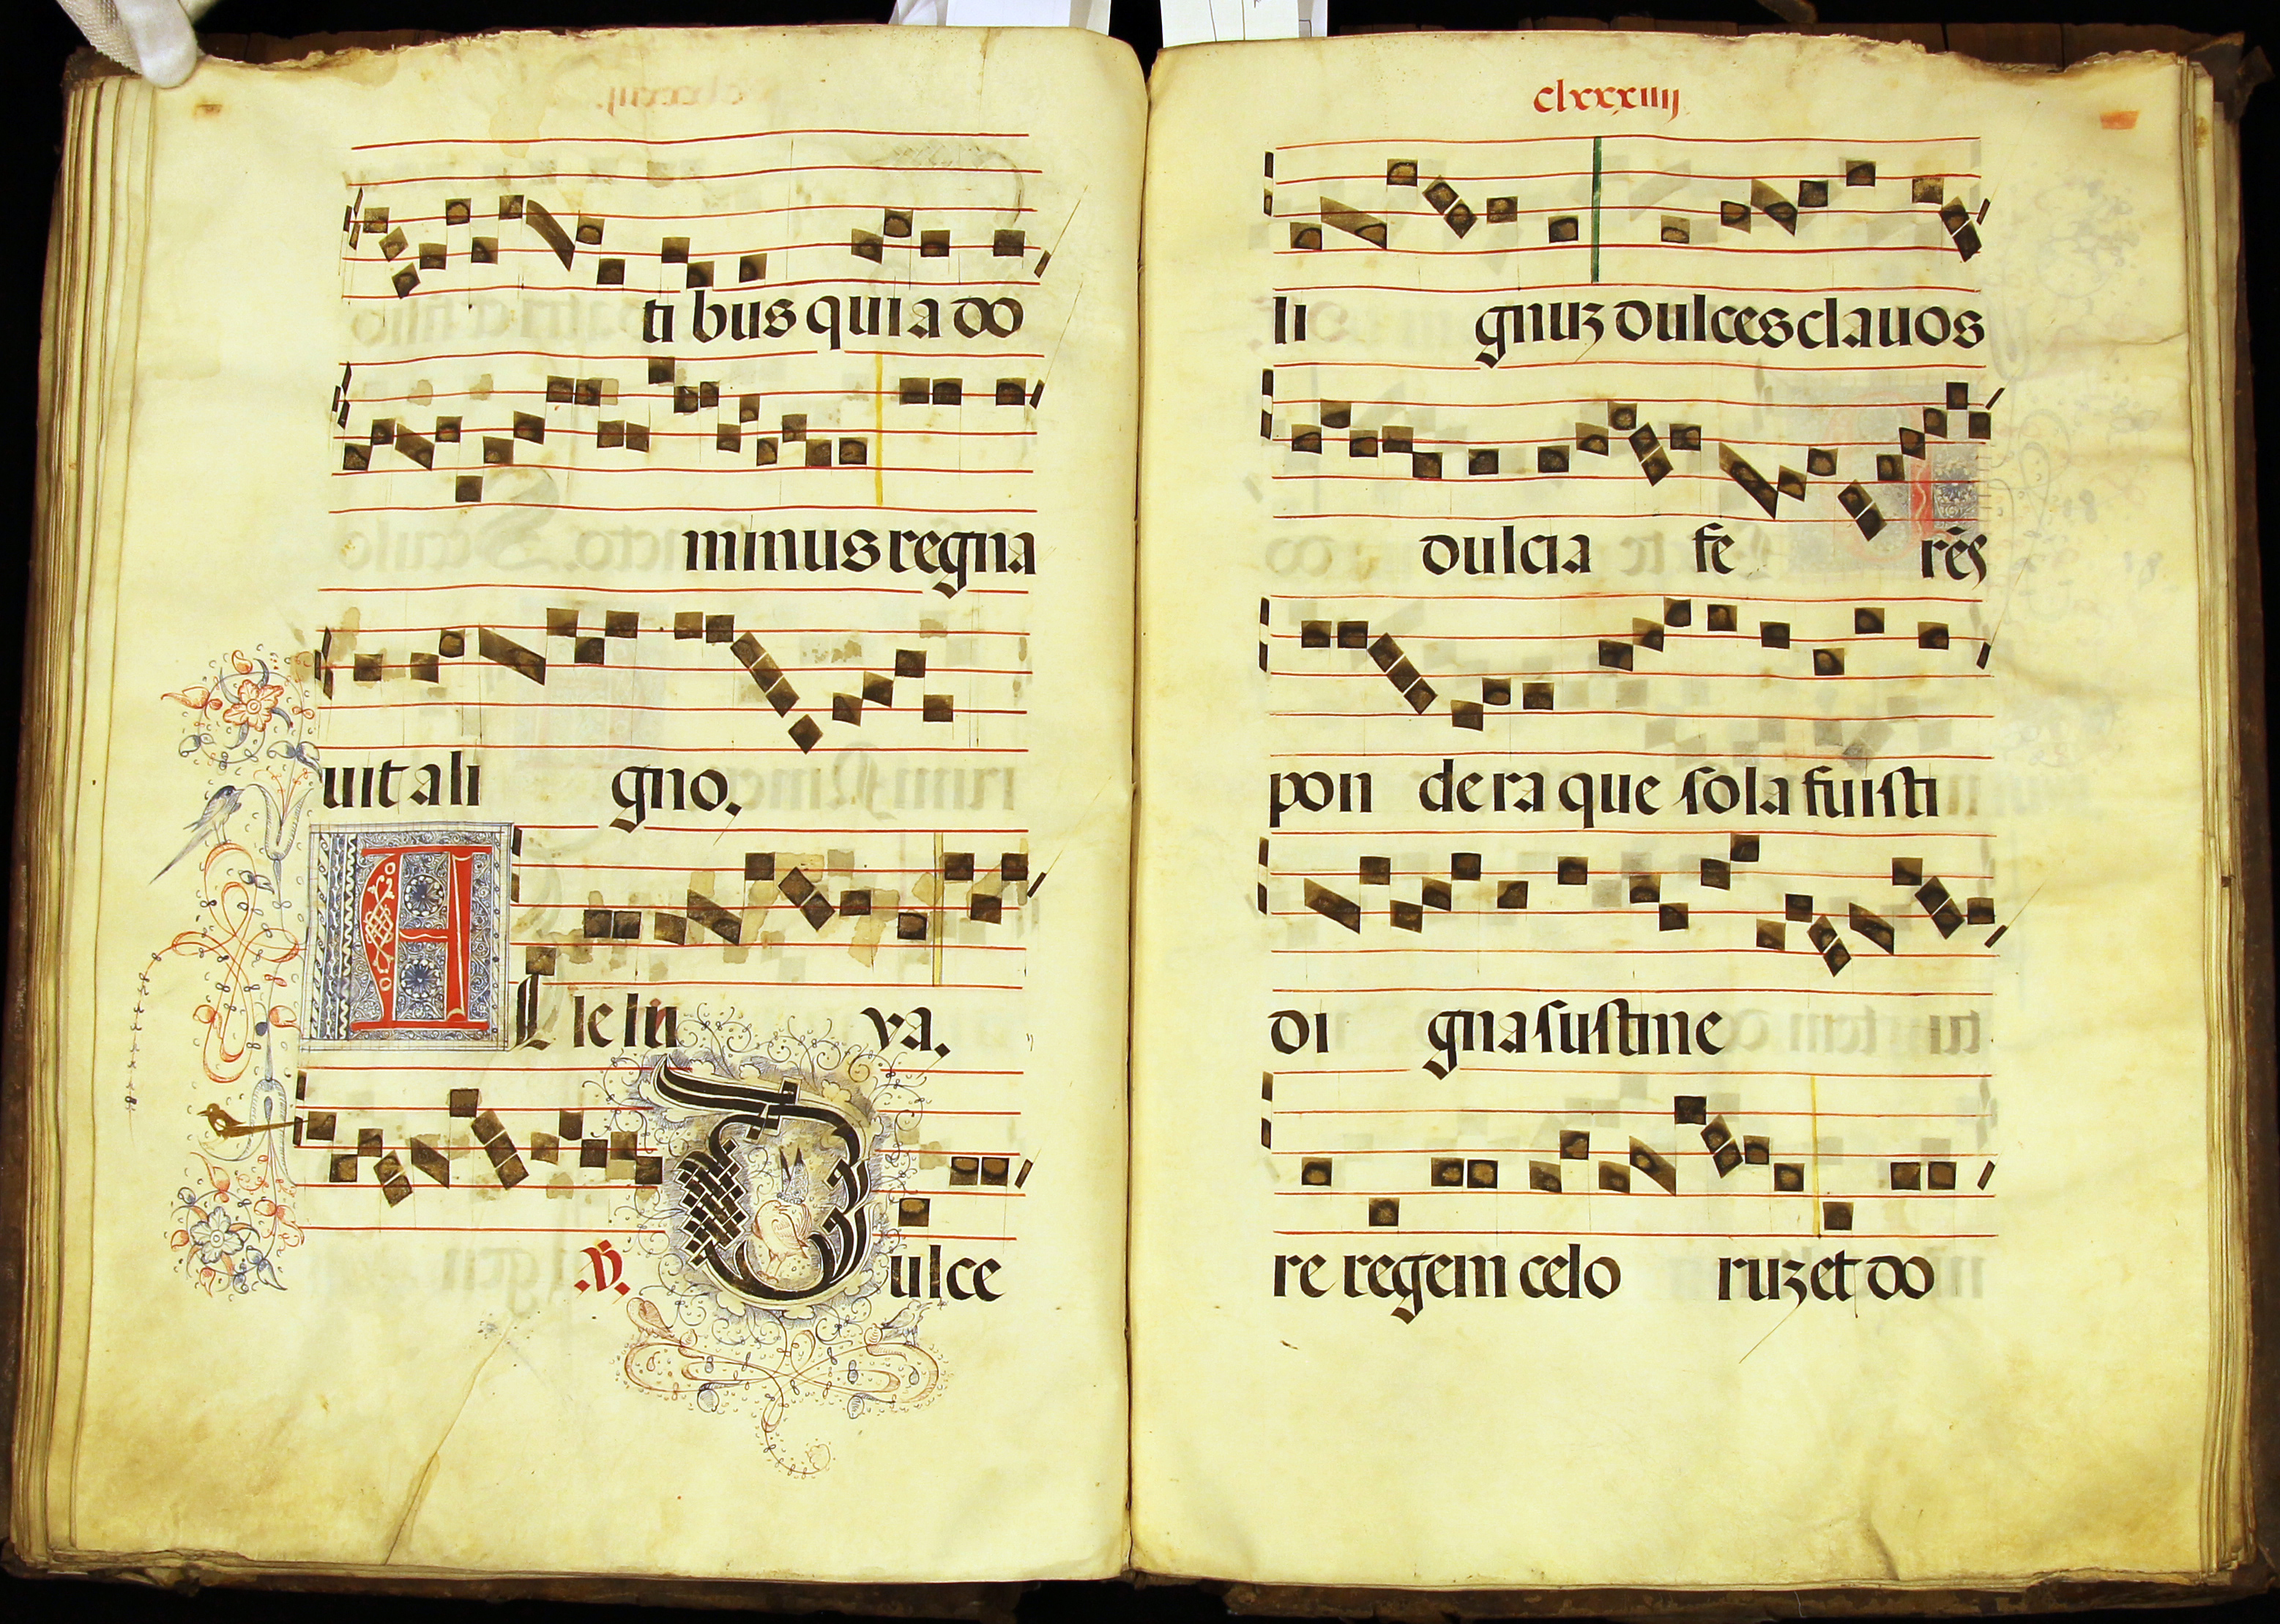 ti bus quia do
minus regna
uit a li gno.
Alle lu ya.
.V. Dulce
clxxxiiij
li gnuz dulces clauos
dulcia fe rēs
pon dera que sola fuisti
di gna sustine
re regem celo ruz et do